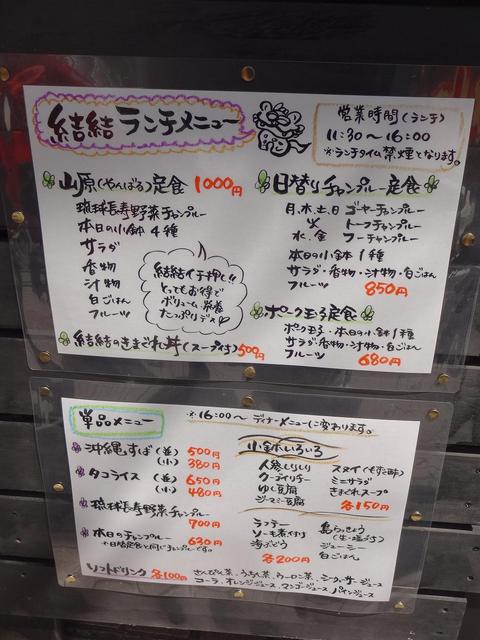 結結ランチメニュー
営業時間(ランチ)
11:30〜16:00
※ランチタイム禁煙となります。
山原(やんばる)定食 1000円
琉球長寿野菜チャンプルー
本日の小鉢4種
サラダ
香物
汁物
白ごはん
フルーツ
結結イチ押し!!
とってもお得で
ボリューム、栄養
たっぷりデス
結結のきまぐれ丼(スープ付)500円
日替りチャンプルー定食
月、木、土、日 ゴーヤーチャンプルー
火 トーフチャンプルー
水、金 フーチャンプルー
本日の小鉢1種
サラダ・香物・汁物・白ごはん
フルーツ 850円
ポーク玉子定食
ポーク玉子・本日の小鉢1種
サラダ・香物・汁物・白ごはん
フルーツ 680円
単品メニュー
※16:00〜ディナーメニューに変わります。
沖縄そば(並) 500円
(小) 380円
タコライス(並) 650円
(小) 480円
琉球長寿野菜チャンプルー
700円
本日のチャンプルー 630円
※日替定食と同じチャンプルーです。
ソフトドリンク 各100円
さんぴん茶、うっちん茶、ウーロン茶、シークヮーサージュース
コーラ、オレンジジュース、マンゴージュース、パインジュース
小鉢いろいろ
人参しりしり
クーブイリチー
ゆし豆腐
ジーマミー豆腐
スヌイ(もずく酢)
ミニサラダ
きまぐれスープ
各150円
ラフテー
ソーキ煮付け
海ぶどう
島らっきょう
(生・塩づけ)
ジューシー
白ごはん
各200円